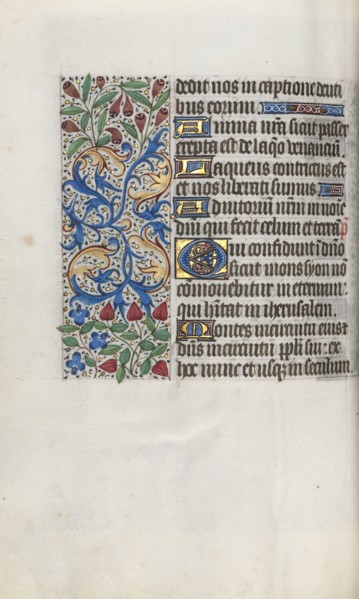 dedit nos in captione denti
bus eorum.
Anima nr̃a sicut passer
erepta est de laq̃o venantiũ.
Laqueus contritus est
et nos liberati sumus.
Adiutoriũ nr̃m in noĩe
dñi qui fecit celum et terrã
Qui confidunt ĩ dño
sicut mons syon nõ
cõmovebitur in eternum:
qui hĩtat in iherusalem.
Montes in circuitu eius: et
dñs in circuitu ppl̃i sui: ex
hoc nunc et usq̃ in seculum.